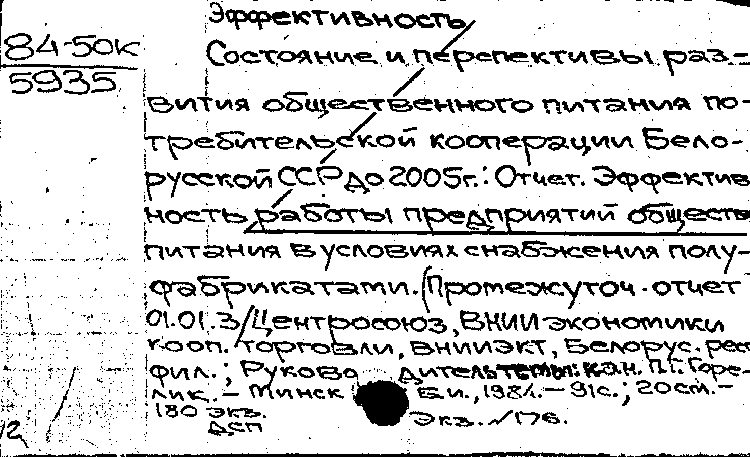 Эффективность
84-50к
5935
Состояние и перспективы раз-
вития общественного питания по-
требительской кооперации Бело-
русской ССР до 2005г.: Отчет. Эффектив
ность работы предприятий обществ
питания в условиях снабжения полу-
фабрикатами. (Промежуточ. отчет
01.01.3/Центросоюз, ВНИИ экономики
кооп. торговли, ВНИИЭКТ, Белорус. респ
фил.; Руково дитель темы: к.э.н. П.Г. Горе-
лик. - Минск Б.и., 1984. - 91с.; 20см. -
180 экз. Экз. №176.
ДСП